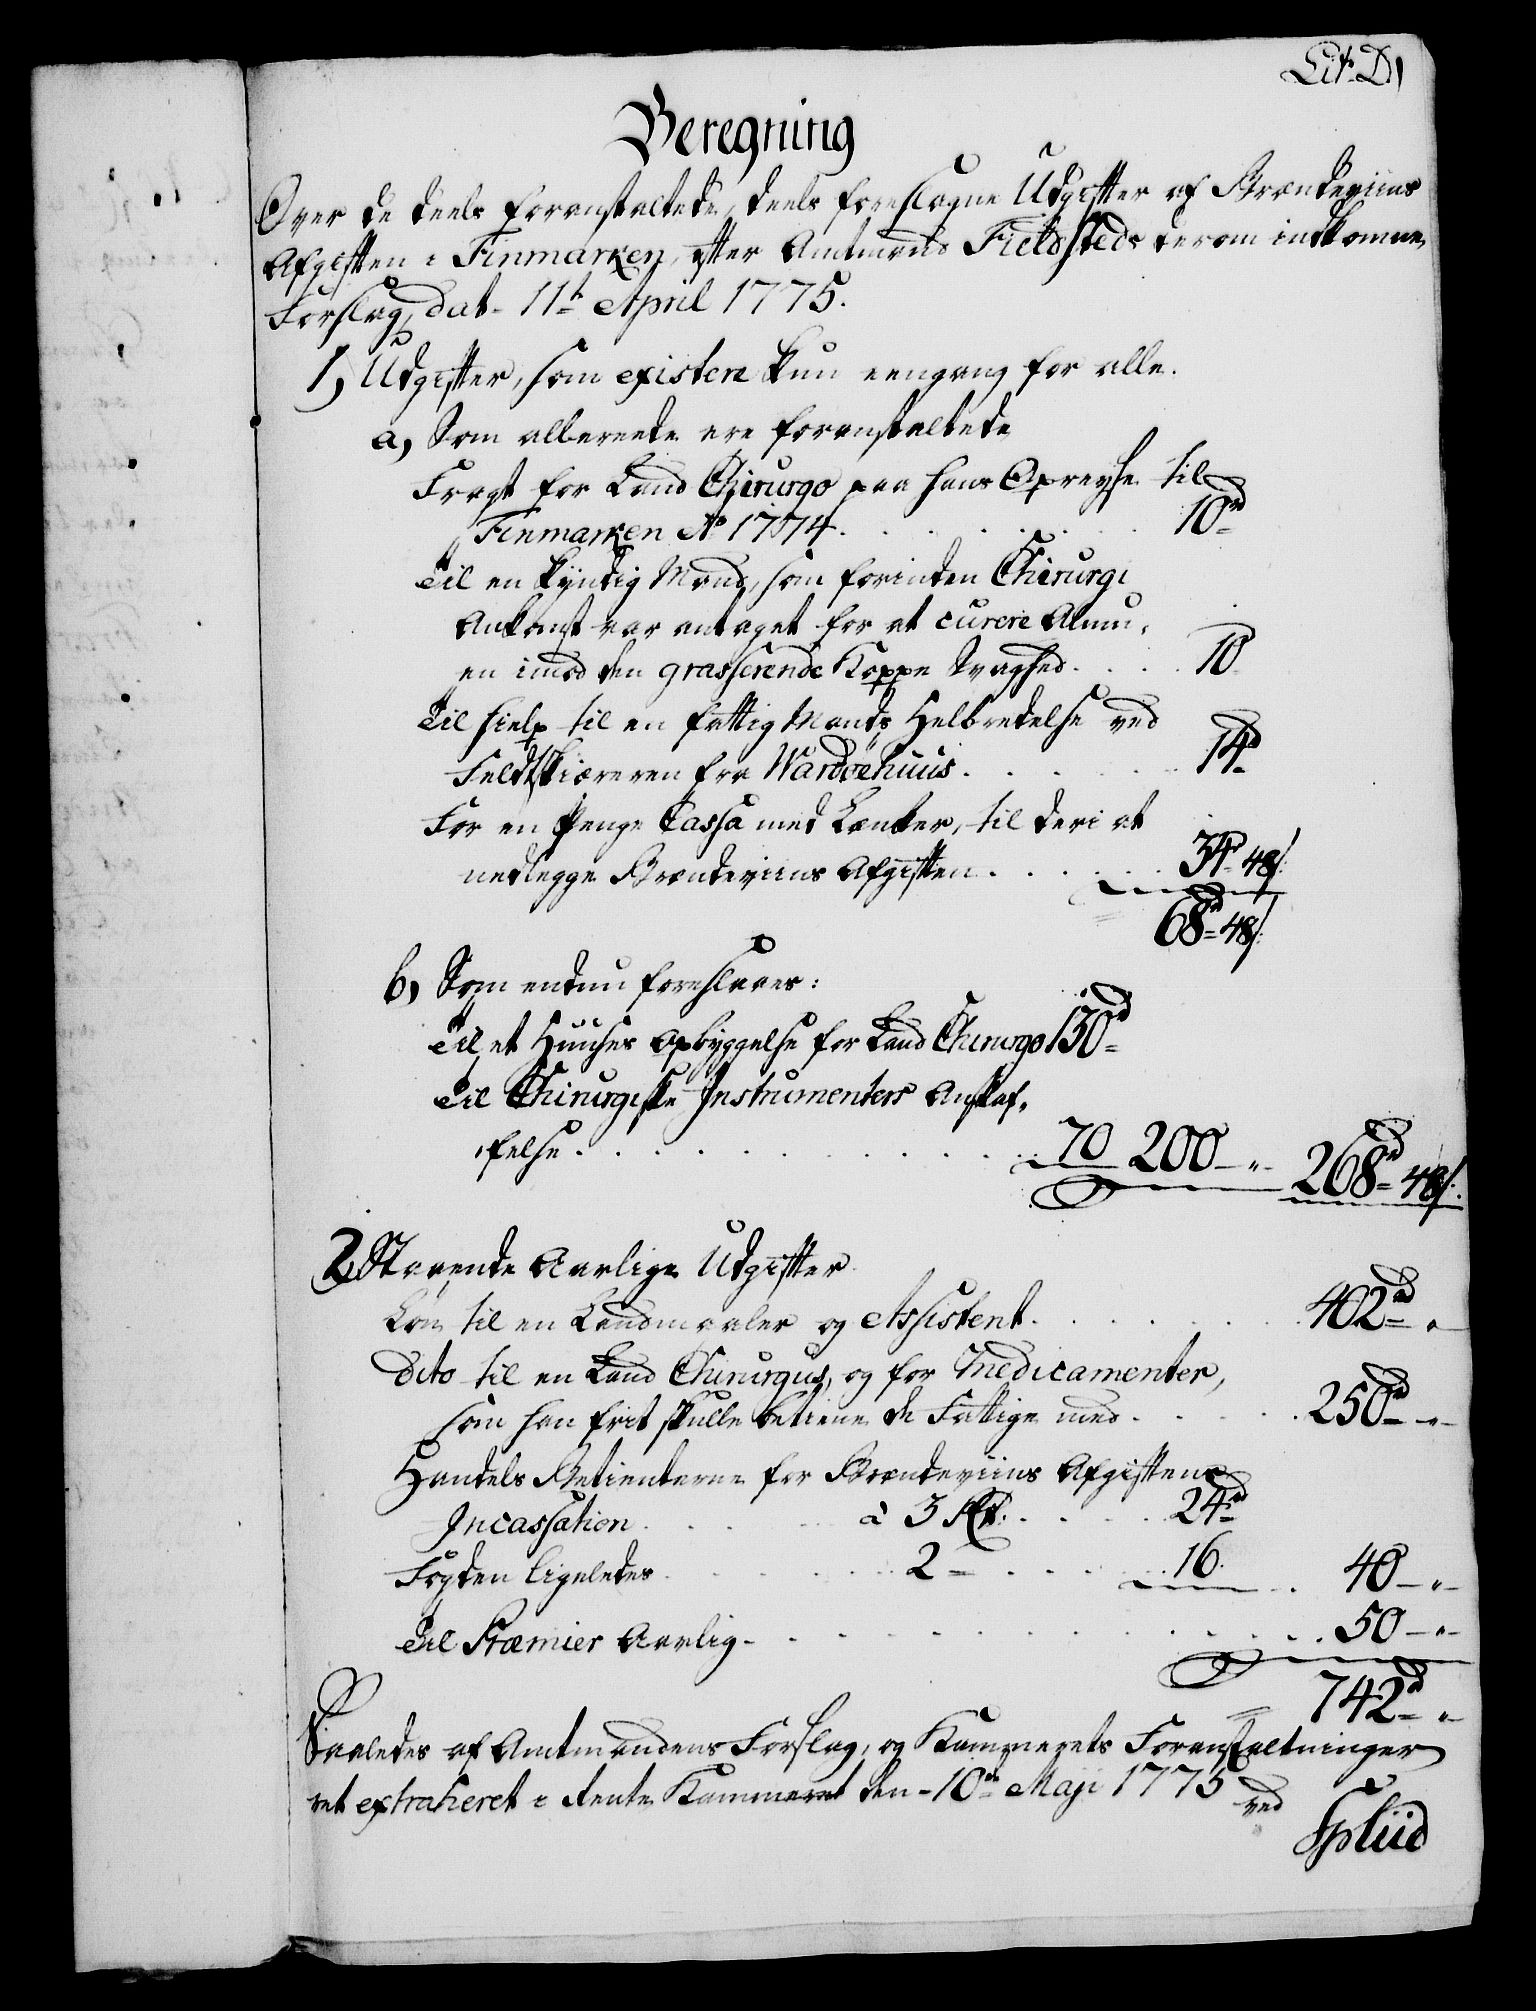 Lit. D,
Beregning
Over de deels foranstaltede, deels foreslagne Udgifter af Brændeviins
Afgiften i Finmarken, efter Amtmand Fieldsteds derom indkomne
Forslag, dat. 11t April 1775.
1, Udgifter, som existere kun eengang for alle.
a, Som allereede ere foranstaltede
Fragt for Land Chirurgo paa hans Opreyse til
Finmarken Ao 1774. . . . . . 10rd
Til en kyndig Mand, som forinden Chirurgi
Ankomst var antaget for at curere Almu,
en imod den grasserende Koppe Svaghed. . . . 10
Til hielp til en fattig Mands Helbredelse ved
Feldtskiæreren fra Wardöehuus. . . . . . 14rd
For en Penge Cassa med Lænker, til deri at
nedlegge Brændeviins Afgiften. . . . . 34rd 48/:
68rd 48/:
b, Som endnu foreslaaes:
Til et Huuses Opbyggelse for Land Chirurgo 130rd
Til Chirurgiske Instrumenters Anskaf,
,felse. . . . . . . . . 70 200 — „ 268rd 48/:
2, Staaende Aarlige Udgifter
Løn til en Landmaaler og Assistent. . . . . . 402rd „
Dito til en Land Chirurgus, og for Medicamenter,
som han frit skulle betiene de Fattige med. . . . 250rd „
Handels Betienterne for Brændeviins Afgiftens
Incassation. . . . à 3 Rd: . . . 24rd
Fogden ligeledes. . . . . 2 — . . . . 16. . 40 — „
Til Præmier Aarlig. . . . . . . . . . 50 — „
742rd „
Saaledes af Amtmandens Forslag, og Kammerets Foranstaltninger
ret extraheret i Rente Kammeret den 10de Maji 1775 ved
Spliid